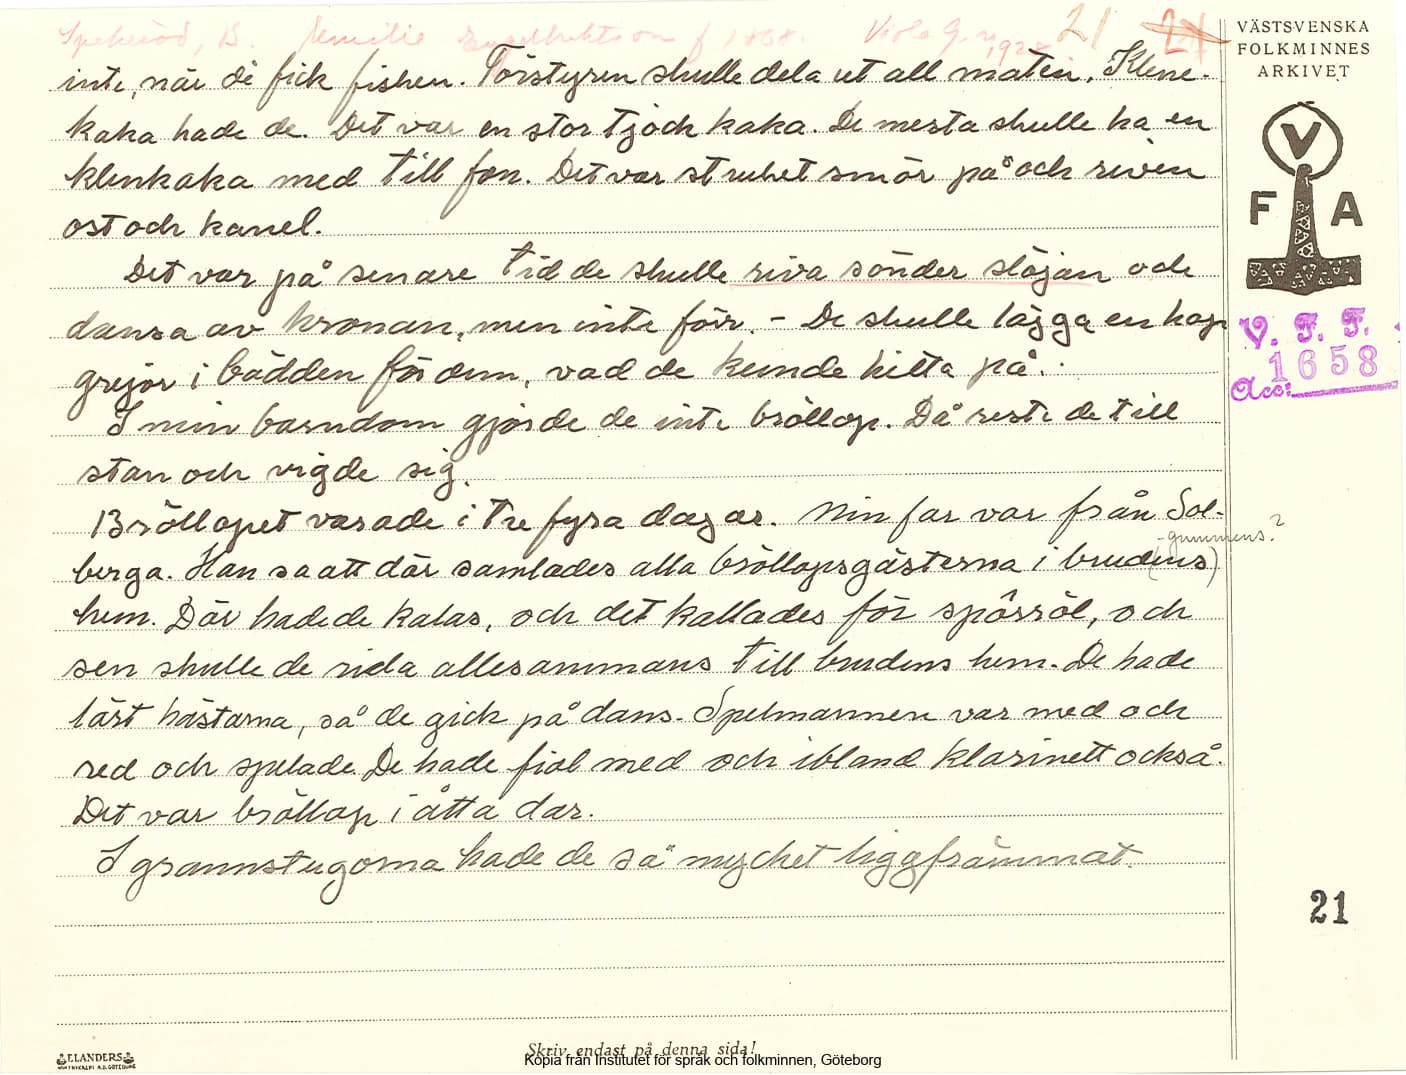 Spekeröd, B. Emilie Engelbrektsson f 1868. Viola G. n 1928 21 21
VÄSTSVENSKA
FOLKMINNES
ARKIVET
inte, när de fick fisken. Törstyren skulle dela ut all maten. Klene-
kaka hade de. Det var en stor tjock kaka. De mesta skulle ha en
klenkaka med till fon. Det var struket smör på och riven
ost och kanel.
Det var på senare tid de skulle riva sönder slöjan och
dansa av kronan, men inte förr. - De skulle lägga en hop
grejor i bädden för dem, vad de kunde hitta på.
I min barndom gjorde de inte bröllop. Då reste de till
stan och vigde sig.
Bröllopet varade i tre fyra dagar. Min far var från Sol-
-gummens?
berga. Han sa att där samlades alla bröllopsgästerna i (brudens)
hem. Där hade de kalas, och det kallades för spörröl, och
sen skulle de rida allesammans till brudens hem. De hade
lärt hästarna, så de gick på dans. Spelmannen var med och
red och spelade. De hade fiol med och ibland klarinett också.
Det var bröllop i åtta dar.
I grannstugorna hade de så mycket liggfrämmat.
V
F A
V. F. F.
1658
Acc:
21
ELANDERS
Skriv endast på denna sida!
Kopia från Institutet för språk och folkminnen, Göteborg